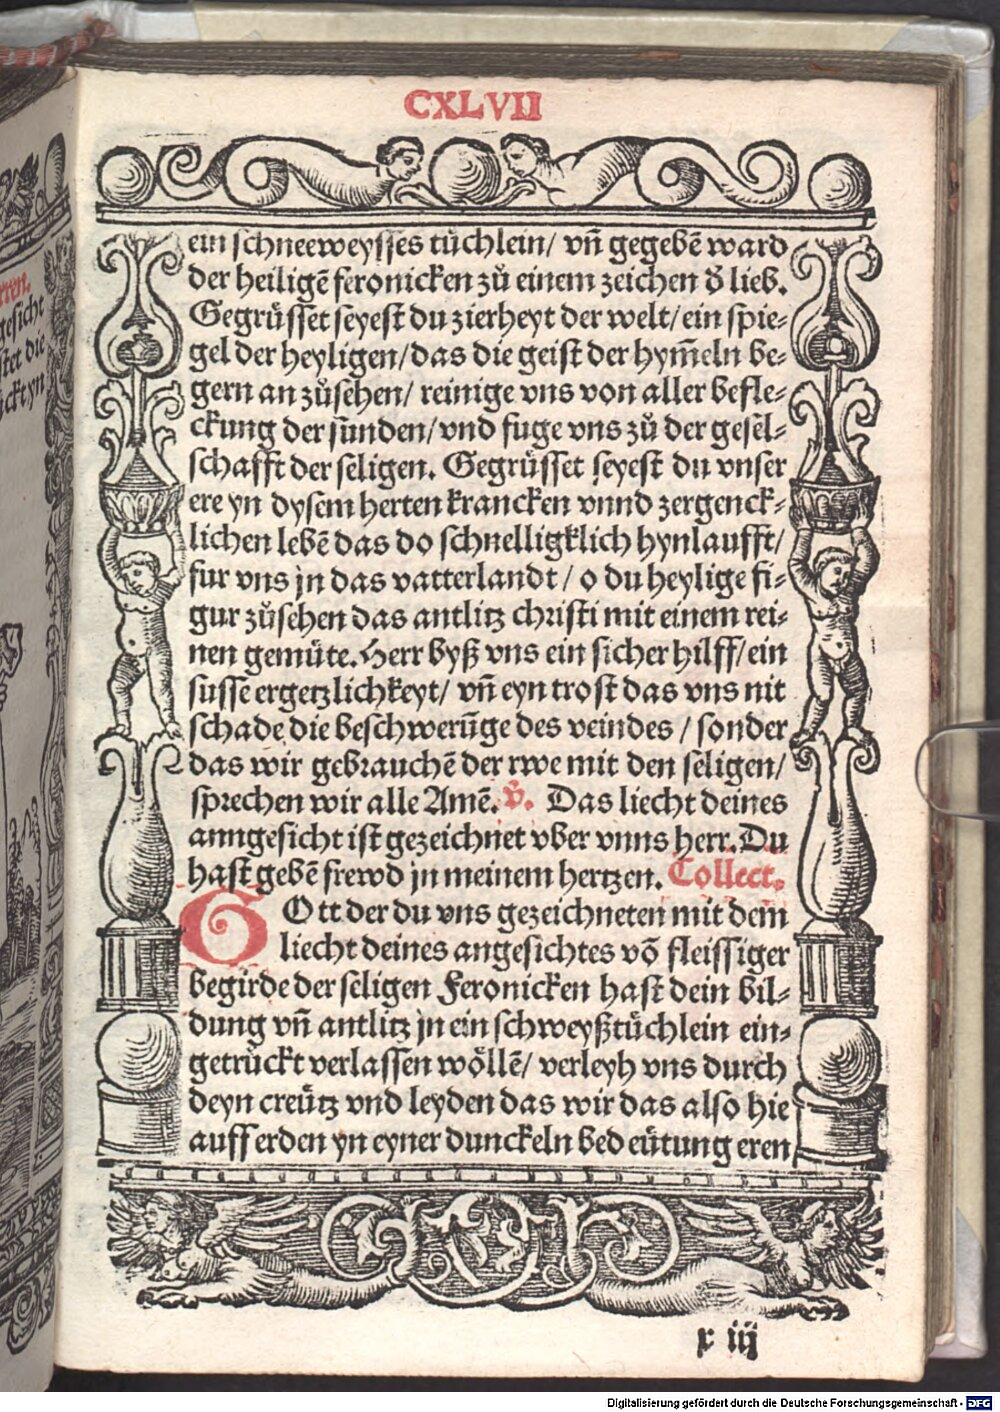 CXLVII
rren.
gesicht
stet die
uckt yn
ein schneeweysses tůchlein/ vn̄ gegebē ward
der heiligē feronicken zů einem zeichen d̕ lieb.
Gegrůsset seyest du zierheyt der welt/ein spie⸗
gel der heyligen/das die geist der hym̄eln be⸗
gern an zůsehen/ reinige vns von aller befle⸗
ckung der sūnden/vnd fuge vns zů der gesel⸗
schafft der seligen. Gegrůsset seyest du vnser
ere yn dysem herten krancken vnnd zergenck⸗
lichen lebē das do schnelligklich hynlaufft/
fur vns jn das vatterlandt / o du heylige fi⸗
gur zůsehen das antlitz christi mit einem rei⸗
nen gemüte. Herr byß vns ein sicher hilff/ein
susse ergetzlichkeyt/ vn̄ eyn trost das vns nit
schade die beschwerūge des veindes / sonder
das wir gebrauchē der rwe mit den seligen/
sprechen wir alle Amē. v̄. Das liecht deines
anngesicht ist gezeichnet vber vnns herr. Du
hast gebē frewd jn meinem hertzen. Collect.
GOtt der du vns gezeichneten mit dem
liecht deines angesichtes vō fleissiger
begirde der seligen Feronicken hast dein bil⸗
dung vn̄ antlitz jn ein schweyßtůchlein ein⸗
getrůckt verlassen wöllē/ verleyh vns durch
deyn creütz vnd leyden das wir das also hie
auff erden yn eyner dunckeln bedeütung eren
r iij
Digitalisierung gefördert durch die Deutsche Forschungsgemeinschaft - DFG